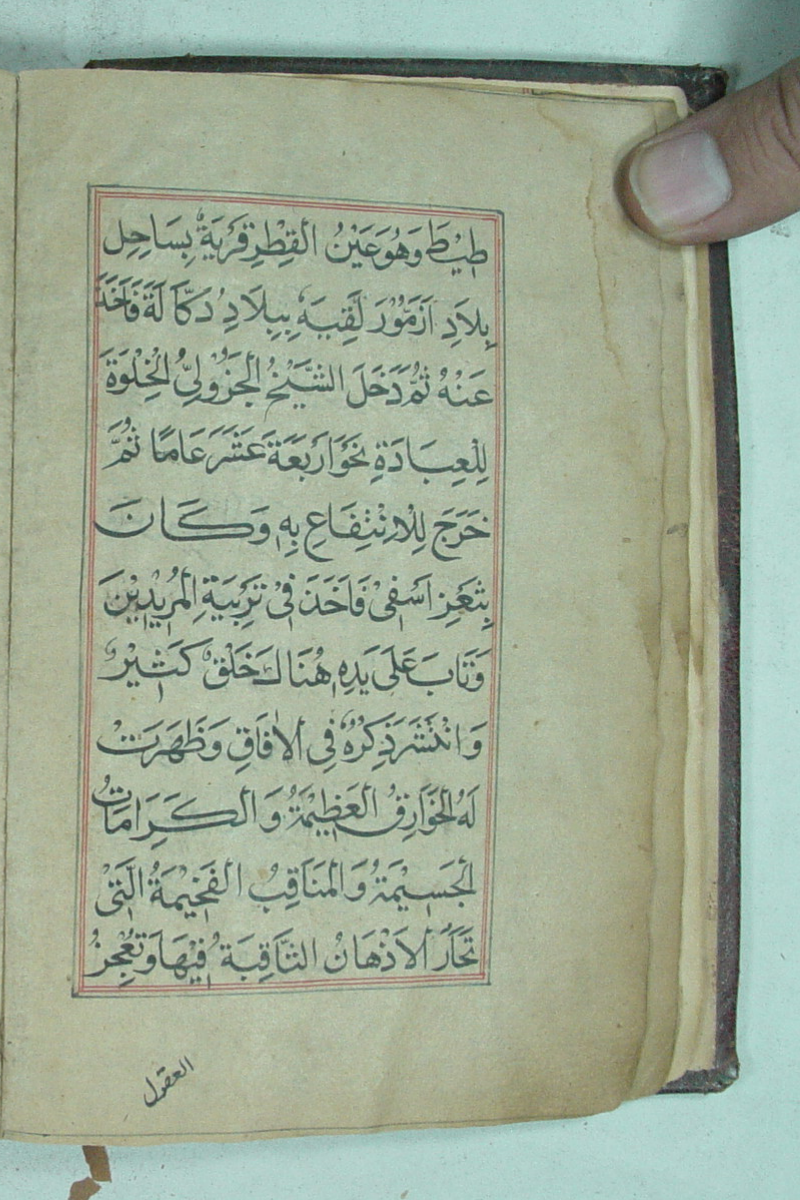 طِيْطَ وَهُوَعَيْنُ الْقِطْرِقَرْيَةٌ بِسَاحِلِ
بِلَادِ اَزَمُّوْرَ لَقِيَهُ بِبِلَادِ دَكَّالَةَ فَاَخَذَ
عَنْهُ ثُمَّ دَخَلَ الشَّيْخُ الْجَزُوْلِيُّ الْخَلْوَةَ
لِلْعِبَادَةِ نَحْوَ اَرْبَعَةَ عَشَرَ عَامًا ثُمَّ
خَرَجَ لِلْاِنْتِفَاعِ بِهِ وَكَانَ
بِثَغْرِ اَسَفِىْ فَاَخَذَ فِىْ تَرْبِيَةِ الْمُرِيْدِيْنَ
وَتَابَ عَلَى يَدِهِ هُنَاكَ خَلْقٌ كَثِيْرٌ
وَانْتَشَرَ ذِكْرُهُ فِى الْاٰفَاقِ وَظَهَرَتْ
لَهُ الْخَوَارِقُ الْعَظِيْمَةُ وَالْكَرَامَاتُ
الْجَسِيْمَةُ وَالْمَنَاقِبُ الْفَخِيْمَةُ الَّتِىْ
تَحَارُ الْاَذْهَانُ الثَّاقِبَةُ فِيْهَا وَتَعْجِزُ
العقول